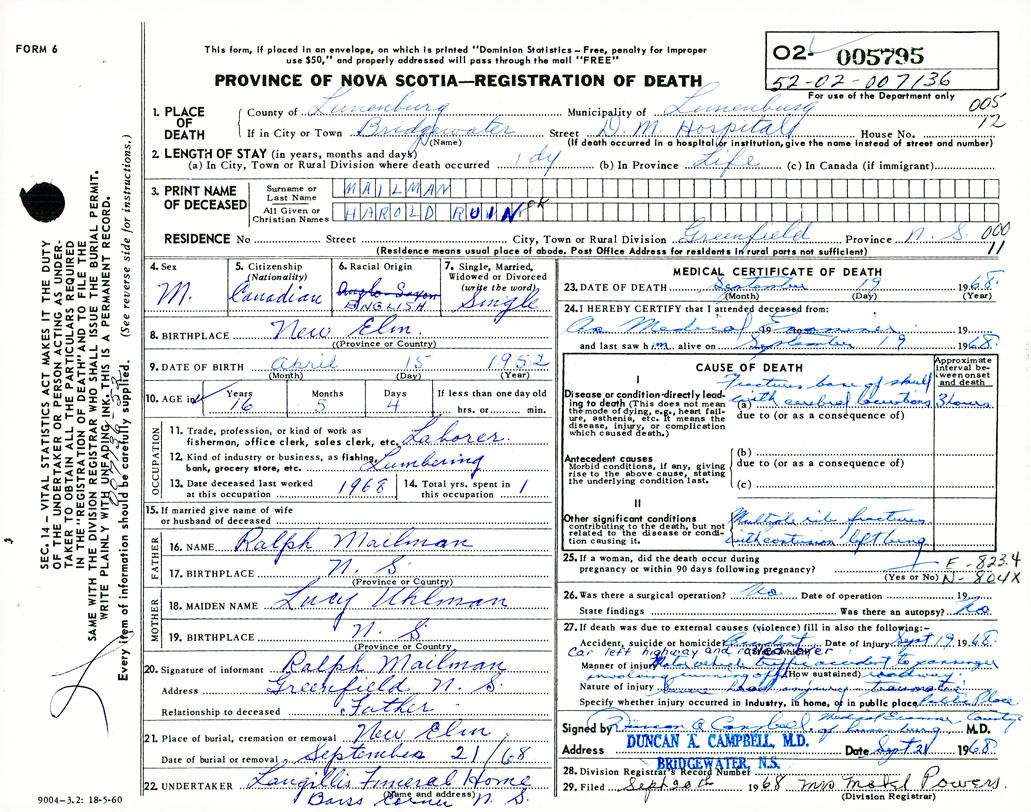 FORM 6
This form, if placed in an envelope, on which is printed "Dominion Statistics – Free, penalty for improper
use $50," and properly addressed will pass through the mail "FREE"
PROVINCE OF NOVA SCOTIA—REGISTRATION OF DEATH
02- 005795
52-02-007136
For use of the Department only
005
12
1. PLACE OF DEATH
County of Lunenburg Municipality of Lunenburg
If in City or Town Bridgewater Street D. M. Hospital House No.
(Name) (If death occurred in a hospital or institution, give the name instead of street and number)
2. LENGTH OF STAY (in years, months and days)
(a) In City, Town or Rural Division where death occurred 1 dy (b) In Province Life (c) In Canada (if immigrant)
3. PRINT NAME OF DECEASED
Surname or Last Name MAILMAN
All Given or Christian Names HAROLD RUIN OK
RESIDENCE No Street City, Town or Rural Division Greenfield Province N. S.
000
11
(Residence means usual place of abode. Post Office Address for residents in rural parts not sufficient)
4. Sex
M.
5. Citizenship (Nationality)
Canadian
6. Racial Origin
Anglo-Saxon
ENGLISH
7. Single, Married, Widowed or Divorced (write the word)
Single
8. BIRTHPLACE New Elm
(Province or Country)
9. DATE OF BIRTH April 15 1952
(Month) (Day) (Year)
10. AGE in
Years 16
Months 5
Days 4
If less than one day old
hrs. or min.
OCCUPATION
11. Trade, profession, or kind of work as
fisherman, office clerk, sales clerk, etc. Laborer.
12. Kind of industry or business, as fishing,
bank, grocery store, etc. Lumbering
13. Date deceased last worked
at this occupation 1968
14. Total yrs. spent in
this occupation 1
15. If married give name of wife
or husband of deceased
FATHER
16. NAME Ralph Mailman
17. BIRTHPLACE N. S.
(Province or Country)
MOTHER
18. MAIDEN NAME Lucy Uhlman
19. BIRTHPLACE N. S
(Province or Country
20. Signature of informant Ralph Mailman
Address Greenfield N. S.
Relationship to deceased Father
21. Place of burial, cremation or removal New Elm
Date of burial or removal September 21/68
22. UNDERTAKER Langille's Funeral Home
(Name and address)
Barss Corner N. S.
MEDICAL CERTIFICATE OF DEATH
23. DATE OF DEATH September 19 1968
(Month) (Day) (Year)
24. I HEREBY CERTIFY that I attended deceased from:
As Medical Examiner 19 19
and last saw him alive on September 19 1968.
CAUSE OF DEATH
Approximate interval between onset and death
I
Disease or condition directly leading to death (This does not mean the mode of dying, e.g., heart failure, asthenia, etc. It means the disease, injury, or complication which caused death.)
Fracture base of skull
(a) with cerebral 3 hours
due to (or as a consequence of)
Antecedent causes
Morbid conditions, if any, giving rise to the above cause, stating the underlying condition last.
(b)
due to (or as a consequence of)
(c)
II
Other significant conditions contributing to the death, but not related to the disease or condition causing it.
Multiple rib fractures
with contusion left lung
25. If a woman, did the death occur during
pregnancy or within 90 days following pregnancy?
(Yes or No)
E - 823.4
N - 804X
26. Was there a surgical operation? No. Date of operation 19
State findings Was there an autopsy? No.
27. If death was due to external causes (violence) fill in also the following:–
Accident, suicide or homicide Accident Date of injury Sept 19 1968.
Car left highway and over
Manner of injury Motor vehicle traffic accident to passenger
(How sustained)
involving running off roadway.
Nature of injury head injury traumatic
Specify whether injury occurred in industry, in home, or in public place Public Place
Signed by Duncan A Campbell Medical Examiner County of Lunenburg M.D.
DUNCAN A. CAMPBELL, M.D.
Address BRIDGEWATER, N.S. Date Sept 21 1968.
28. Division Registrar's Record Number
29. Filed Sept 20th 1968 Mrs Powers
(Division Registrar)
SEC. 14 – VITAL STATISTICS ACT MAKES IT THE DUTY
OF THE UNDERTAKER OR PERSON ACTING AS UNDER-
TAKER TO OBTAIN ALL THE PARTICULARS REQUIRED
IN THE "REGISTRATION OF DEATH" AND TO FILE THE
SAME WITH THE DIVISION REGISTRAR WHO SHALL ISSUE THE BURIAL PERMIT.
WRITE PLAINLY WITH UNFADING INK. THIS IS A PERMANENT RECORD.
Every item of information should be carefully supplied. (See reverse side for instructions.)
9004–3.2: 18-5-60